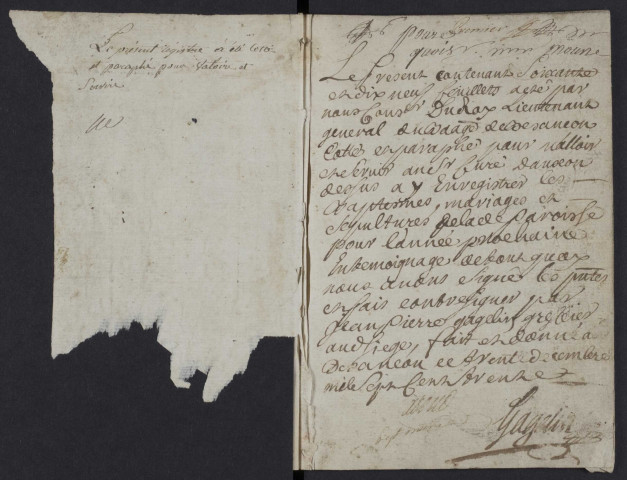 Le présent registre a été Cotté
et paraphé pour Valoir et
Servir
pour
Le Present Contenant Soixante
et dix neuf feuillets a esté par
nous Lieutenant
general de Besancon
Cotté et paraphé pour valloir
et servir au Sr Curé Dauxon
dessus a y Enregistrer les
Baptemes, mariages et
Sepultures de la de Paroisse
pour l'année prochaine
En temoignage de tout quoy
nous avons signé Ce
et fais contresigner par
Jean Pierre Gagelin greffier
au Siege, fait et donné a
Besancon ce trente decembre
mil Sept Cent
Gagelin